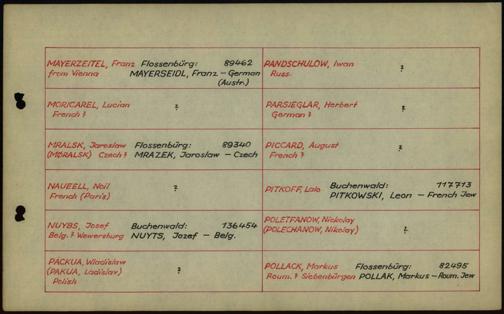 MAYERZEITEL, Franz Flossenbürg: 89462
from Vienna MAYERSEIDL, Franz – German
(Austr.)
MORICAREL, Lucian ?
French ?
MRALSK, Jaroslaw Flossenbürg: 89340
(MØRALSK) Czech ? MRAZEK, Jaroslaw – Czech
NAUEELL, Neil ?
French (Paris)
NUYBS, Josef Buchenwald: 136454
Belg. ? Wewersburg NUYTS, Jozef – Belg.
PACKUA, Wladislaw ?
(PAKUA, Ladislav)
Polish
PANDSCHULOW, Iwan ?
Russ.
PARSIEGLAR, Herbert ?
German ?
PICCARD, August ?
French ?
PITKOFF, Lolo Buchenwald: 117713
PITKOWSKI, Leon – French Jew
POLETFANOW, Nickolay ?
(POLECHANOW, Nikolay)
POLLACK, Markus Flossenbürg: 82495
Roum. ? Siebenbürgen POLLAK, Markus – Roum. Jew